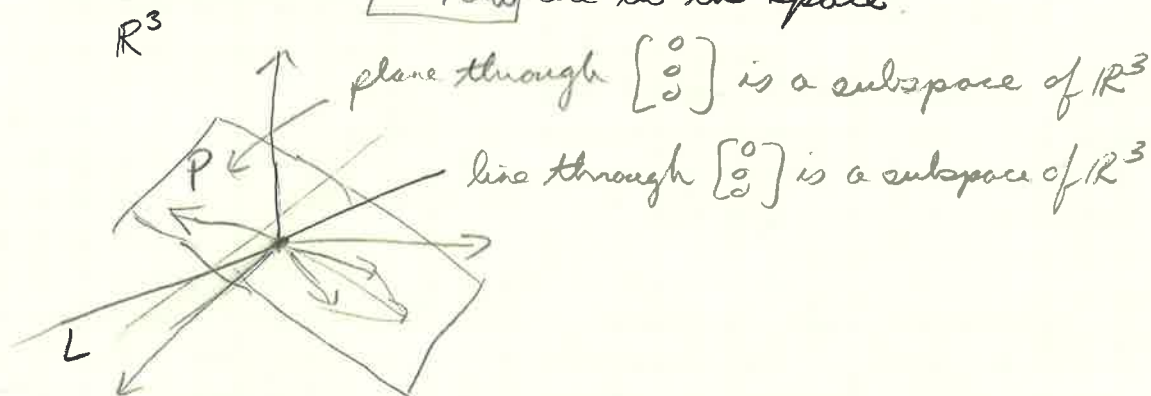 are in the space.
ℝ³
plane through [0 0 0] is a subspace of ℝ³
P
line through [0 0 0] is a subspace of ℝ³
L